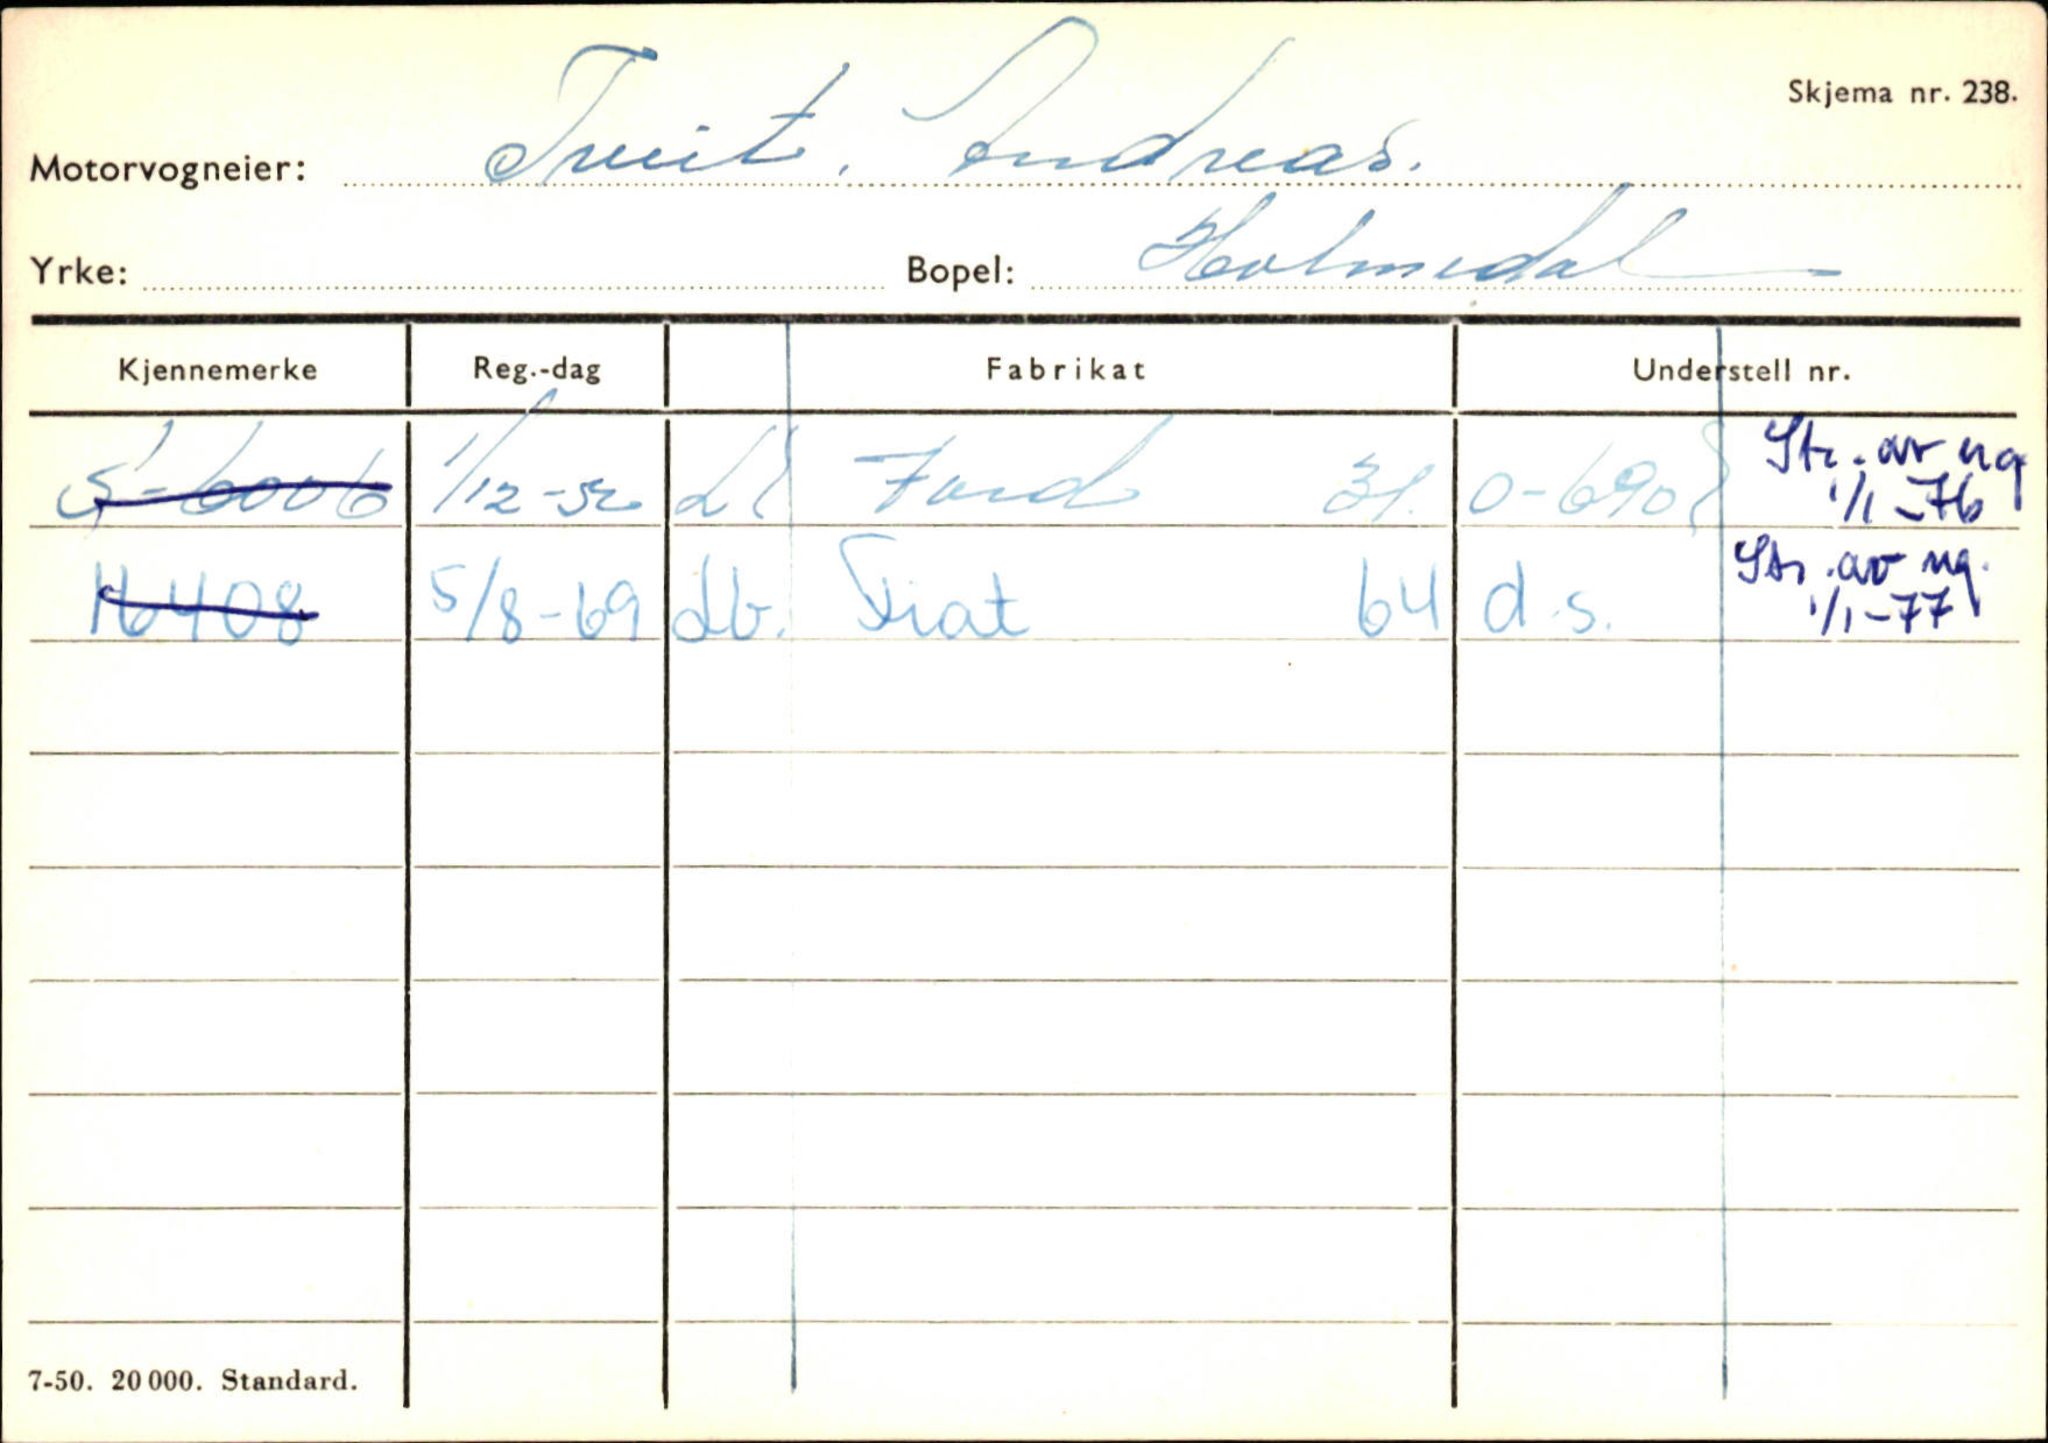 Skjema nr. 238.
Motorvogneier: Tveit. Andreas.
Yrke: Bopel: Holmedal
Kjennemerke Reg.-dag Fabrikat Understell nr.
S-6006 1/12-52 Ll Ford 31. 0-690 Str. av ng 1/1-76
16408 5/8-69 db. Fiat 64 d.s. Str. av ng. 1/1-77
7-50. 20 000. Standard.